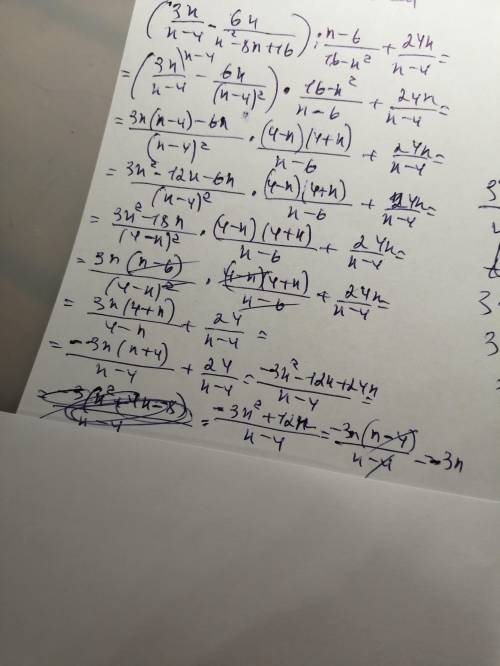 (3n/(n-4) - 6n/(n²-8n+16)) : (n-6)/(16-n²) + 24n/(n-4) =
= (3n\n-4/(n-4) - 6n/(n-4)²) · (16-n²)/(n-6) + 24n/(n-4) =
= (3n(n-4)-6n)/(n-4)² · (4-n)(4+n)/(n-6) + 24n/(n-4) =
= (3n²-12n-6n)/(n-4)² · (4-n)(4+n)/(n-6) + 24n/(n-4) =
= (3n²-18n)/(4-n)² · (4-n)(4+n)/(n-6) + 24n/(n-4) =
= 3n(n-6)/(4-n)² · (4-n)(4+n)/(n-6) + 24n/(n-4) =
= 3n(4+n)/(4-n) + 24/(n-4) =
= -3n(n+4)/(n-4) + 24/(n-4) = (-3n²-12n+24n)/(n-4) =
= (-3n²+12n)/(n-4) = -3n(n-4)/(n-4) = -3n